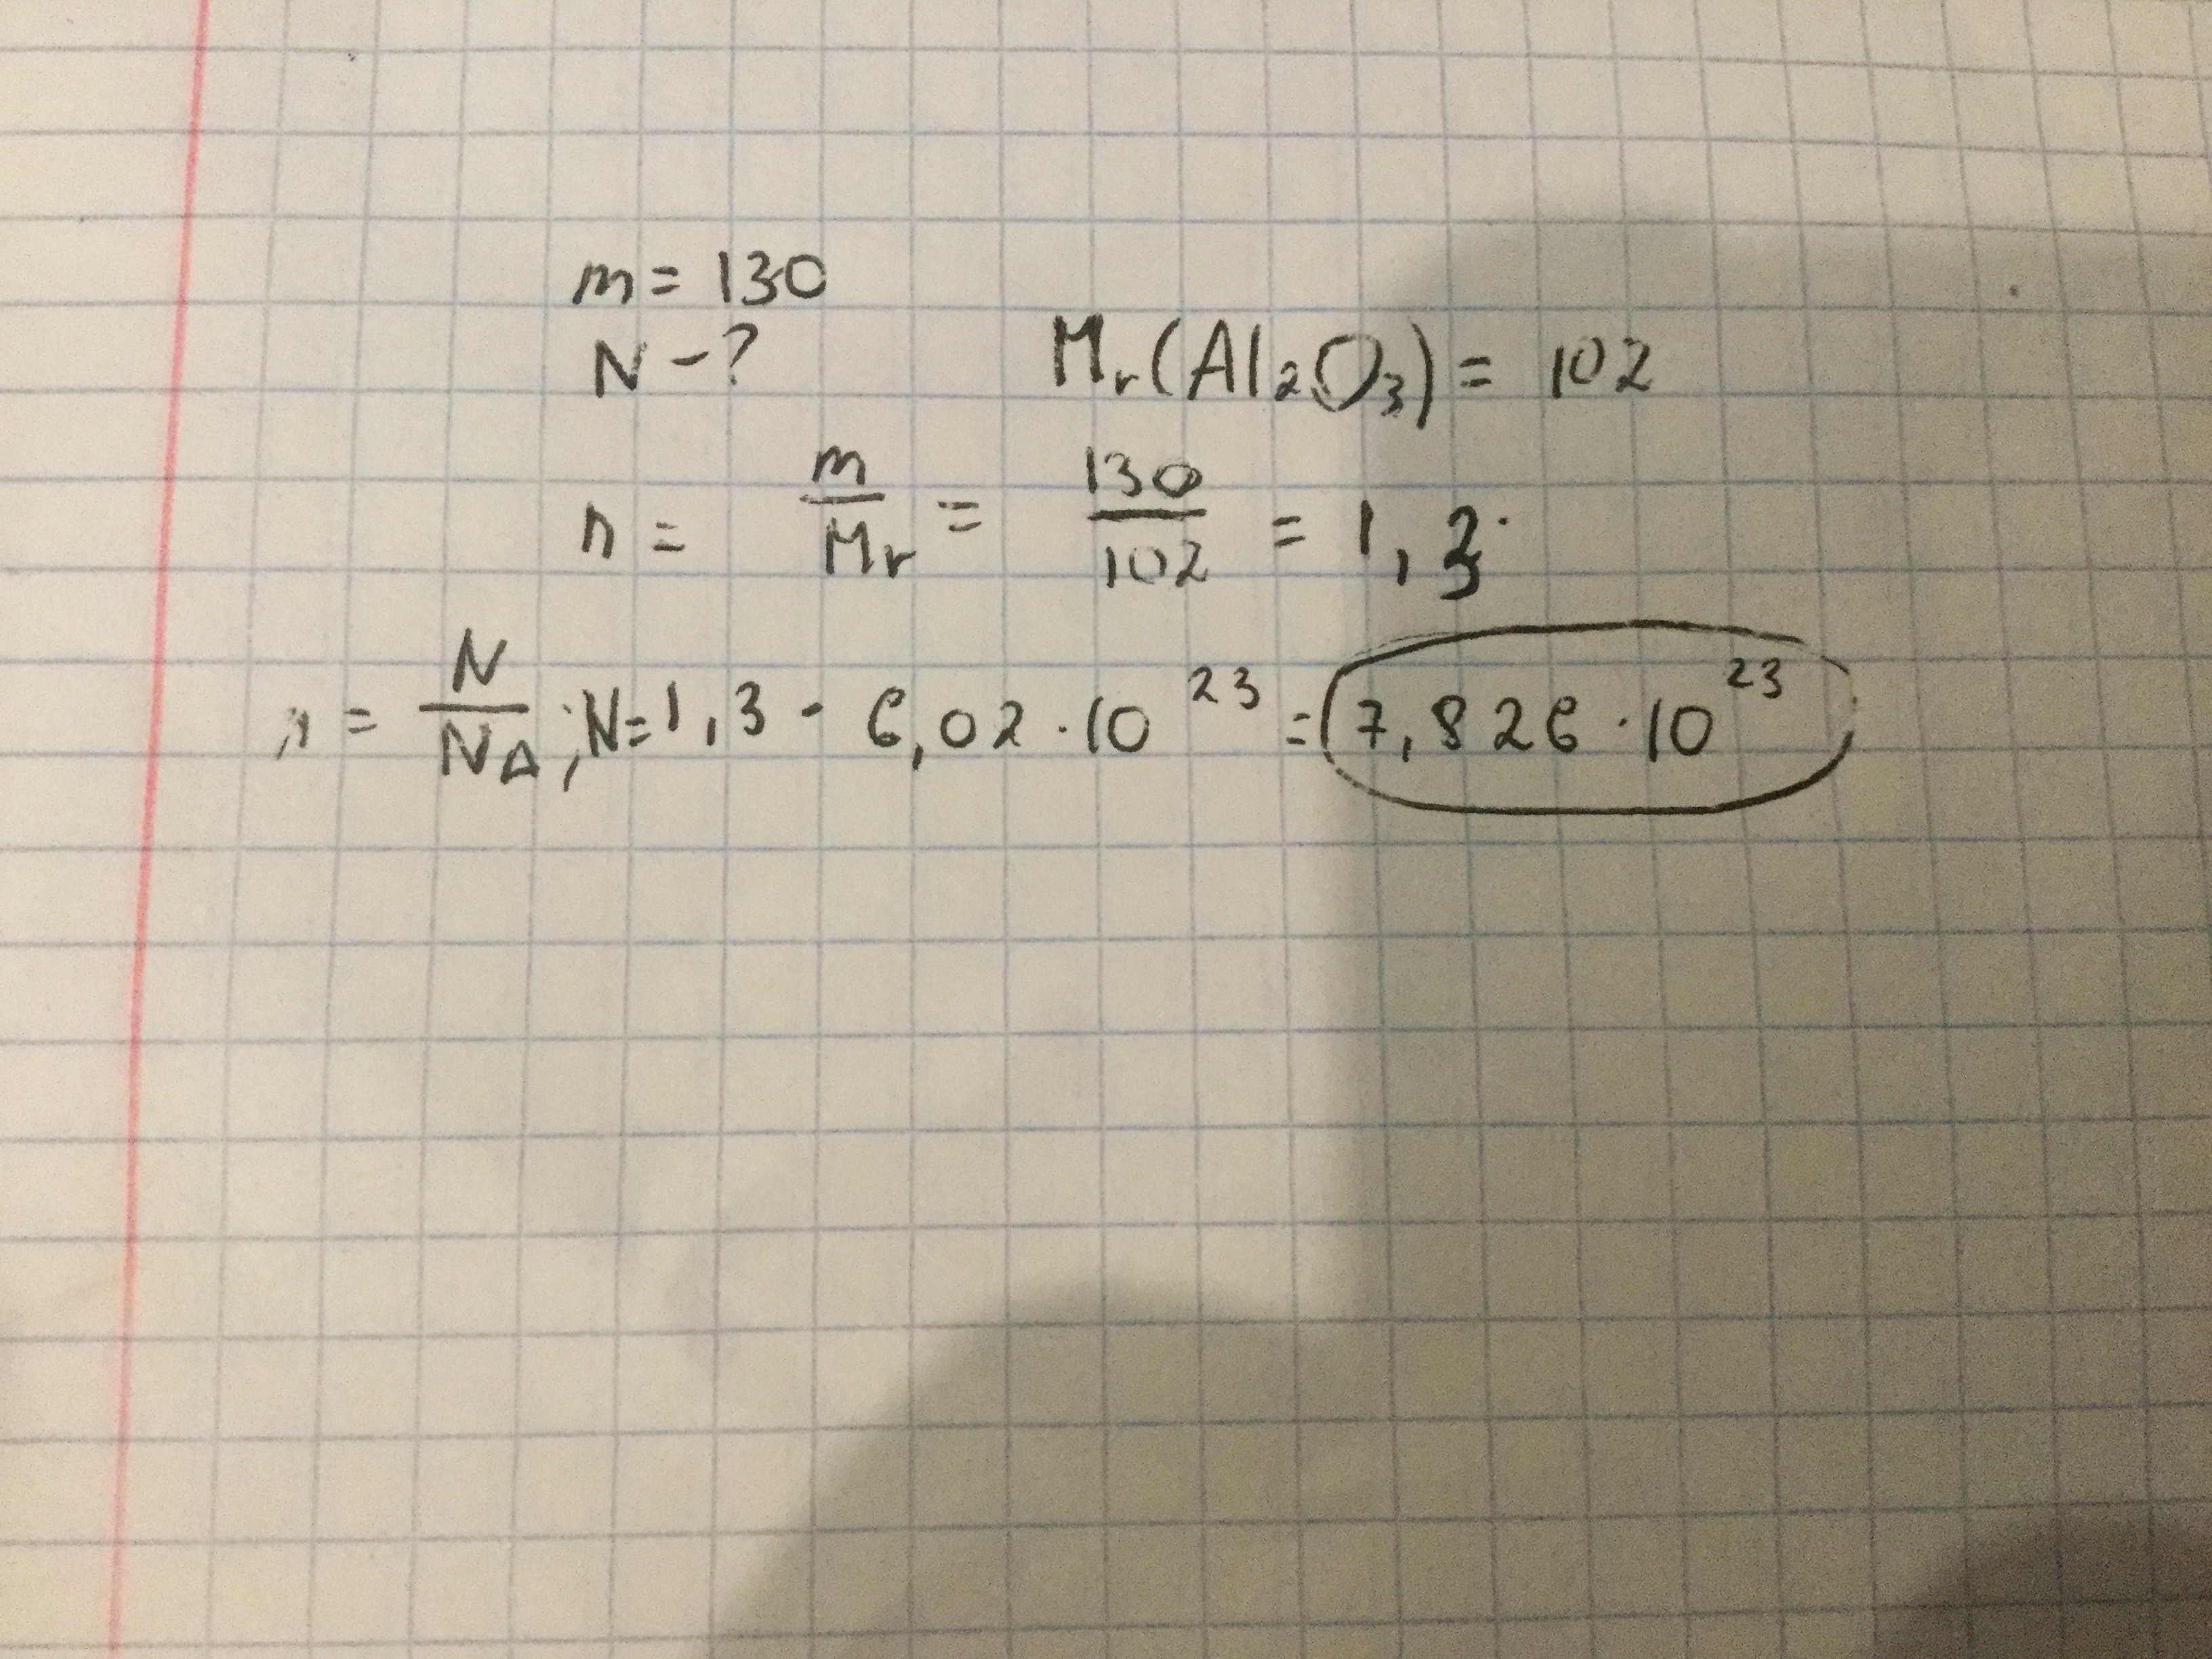 m = 130
N - ?
Mr(Al₂O₃) = 102
n = m/Mr = 130/102 = 1,3
n = N/NA ; N = 1,3 · 6,02 · 10²³ = 7,826 · 10²³